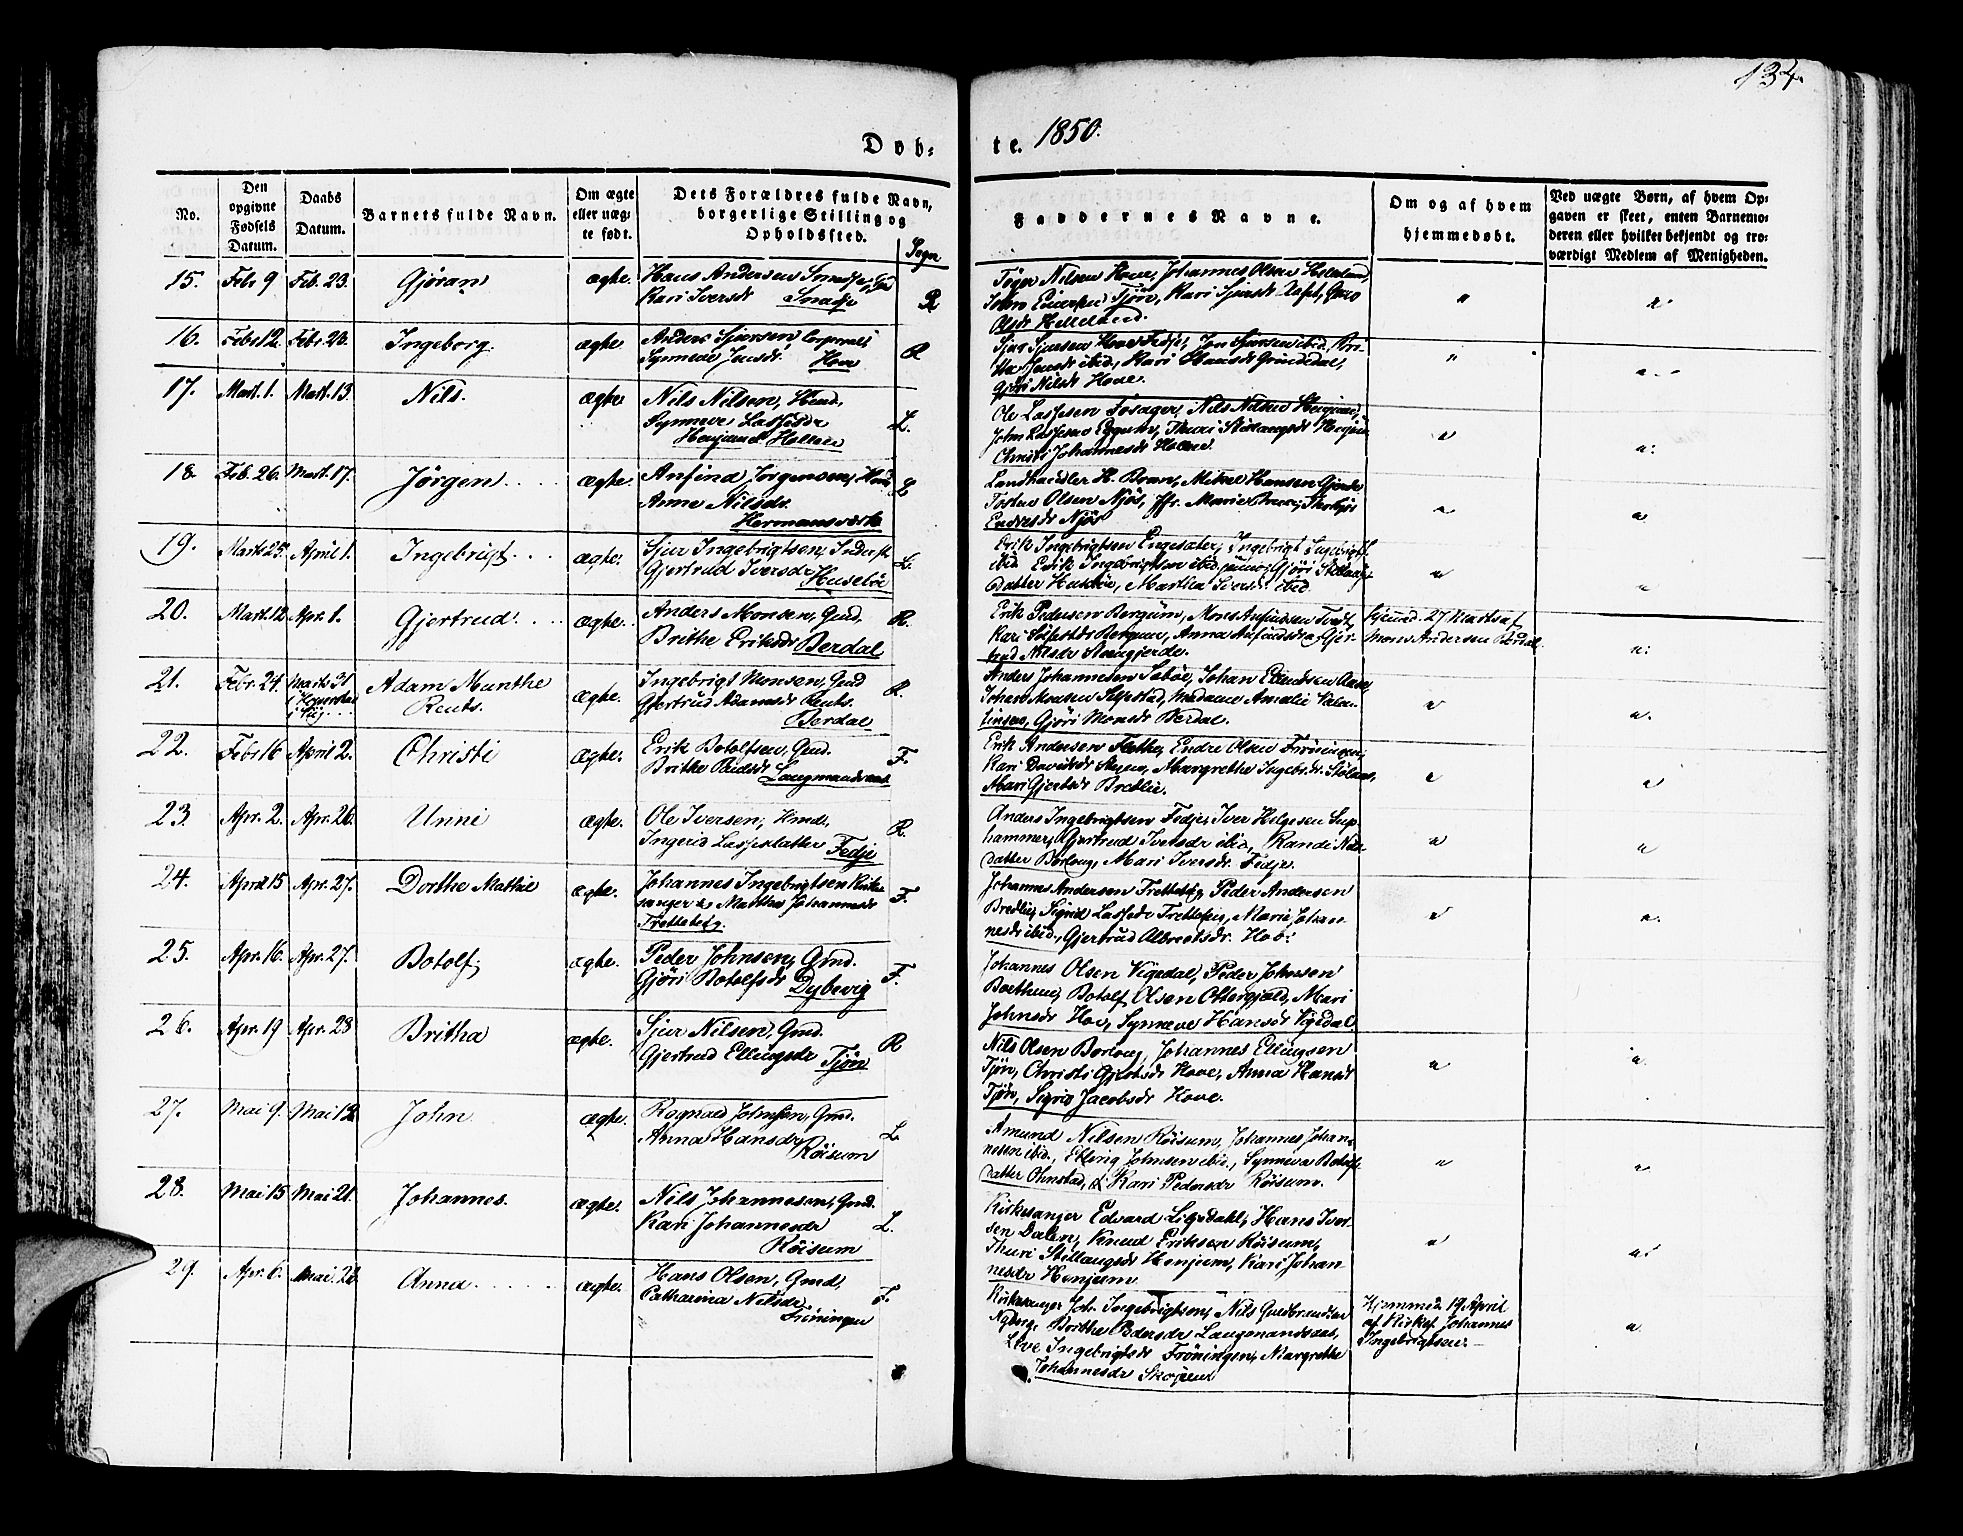 134.
Døb-
te. 1850.
No.
Den opgivne Fødsels Datum.
Daabs Datum.
Barnets fulde Navn.
Om ægte eller uæg-
te født.
Dets Forældres fulde Navn,
borgerlige Stilling og
Opholdssted.
Sogn
Faddernes Navne.
Om og af hvem
hjemmedøbt.
Ved uægte Børn, af hvem Op-
gaven er skeet, enten Barnemo-
deren eller hvilket bekjendt og tro-
værdigt Medlem af Menigheden.
15. Febr 9 Feb. 23. Gjøran ægte. Hans Andersen
Kari Iversdr R
Johannes Olsen
Tjøn, Kari
Olsdr Helleland.
16. Febr 12. Febr. 23. Ingeborg. ægte Anders Sjursen, Corporal
Synneve Jensdr. Hove R.
Sjur Sjursen Hove
ibid., Kari Hansdr Grindedal,
Gjøri Nilsdr Hove.
17. Mart. 1. Mart. 13. Nils. ægte Nils Nilsen,
Synneve Lassesdr
Henjum L.
Ole Lassesen Føsager, Nils Nilsen Henjum,
John Lassesen
Christi Johannesdr
18. Feb. 26. Mart. 17. Jørgen ægte. Anfind Jørgensen,
Anne Nilsdr.
Hermansværk L
Landhandler H. Hansen
Olsen Njøs, Jfr. Marie
Endresdr Njøs
19. Marts 25. April 1. Ingebrigt ægte. Sjur Ingebrigtsen,
Gjertrud Iversdr Husebøe L.
Erik Ingebrigtsen Engesæter, Ingebrigt
ibid Erik Ingebrigtsen ibid junior, Gjøri
datter Husebøe, Martha Iversdr ibid.
20. Mart. 12 Apr. 1. Gjertrud. ægte. Anders Monsen, Gmd,
Brithe Eriksdr Berdal R.
Erik Pedersen Bergum, Mons Anfindsen
Kari Bergum, Anna Anfindsdr, Gjer-
trud Nilsdr
27 Marts af
Mons Andersen Berdal.
21. Febr. 24. Marts 31 Adam Munthe
Rents. ægte. Ingebrigt Monsen, Gmd
Gjertrud Adamsdr Rents.
Berdal R.
Anders Johannesen Sabøe, Johan
Johan Monsen Madame Amalie Valen-
tinsen, Gjøri Monsdr Berdal.
22. Febr 16 April 2. Christi ægte. Erik Botolfsen, Gmd.
Brithe F.
Erik Andersen Endre Olsen Frøningen,
Kari Davidsdr Margrethe Ingebr.dr.
Mari Gjertsdr Bredlie.
23. Apr. 2. Apr. 26. Unni ægte. Ole Iversen, Hmd.
Ingerid Lassesdatter Fedje R.
Anders Ingebrigtsen Fedje, Iver Helgesen Sup-
hammer, Gjertrud Iversdr ibid, Randi Nils-
datter Borlaug, Mari Iversdr. Fedje.
24. April 15 Apr. 27. Dorthe Mathie ægte. Johannes Ingebrigtsen Kirke-
sanger & Martha Johannesdr
Fretteteig. F.
Johannes Andersen Fretteteig, Peder Andersen
Bredlie, Sigrid Lassesdr Fretteteig, Marie Johan-
nesdr ibid., Gjertrud Albrectsdr. Hov.
25. Apr. 16. Apr. 27. Botolf ægte. Peder Johnsen, Gmd.
Gjøri Botolfsdr Dybevig F.
Johannes Olsen Vigedal, Peder Johnsen
Botolf Olsen Ottergjæld, Mari
Johnsdr Hov, Synneve Hansdr Vigedal
26. Apr. 19 Apr. 28 Britha ægte. Sjur Nilsen, Gmd.
Gjertrud Ellingsdr Tjøn R
Nils Olsen Borlaug, Johannes Ellingsen
Tjøn, Christi Gjertsdr Hove, Anna Hansdr
Tjøn, Sigrid Jacobsdr Hove.
27. Mai 9. Mai 12 John ægte. Ragnald Johnsen, Gmd.
Anna Hansdr
Røisum L.
Amund Nilsen Røisum, Johannes Johan-
nesen ibid., Elling Johnsen ibid., Synneva Botolfs-
datter Ohnstad, & Kari Pedersdr Røisum.
28. Mai 15 Mai 21. Johannes. ægte. Nils Johannesen, Gmd.
Kari Johannesdr
Røisum L.
Kirkesanger Edvard Liljedahl, Hans Iver-
sen Dalen, Knud Eriksen Røisum,
Thuri Stellaugsdr Henjum, Kari Johan-
nesdr Henjum
29. Apr. 6. Mai. 26 Anna ægte. Hans Olsen, Gmd,
Catharina Nilsdr
Frøningen F.
Kirkesanger Joh. Ingebrigtsen, Nils Gudbrandsen
Nyberg, Brithe Langmandsdal,
Ingebrigtsdr Frøningen, Margrethe
Johannesdr
Hjemmed. 19 April
af Kirkes. Johannes
Ingebrigtsen.